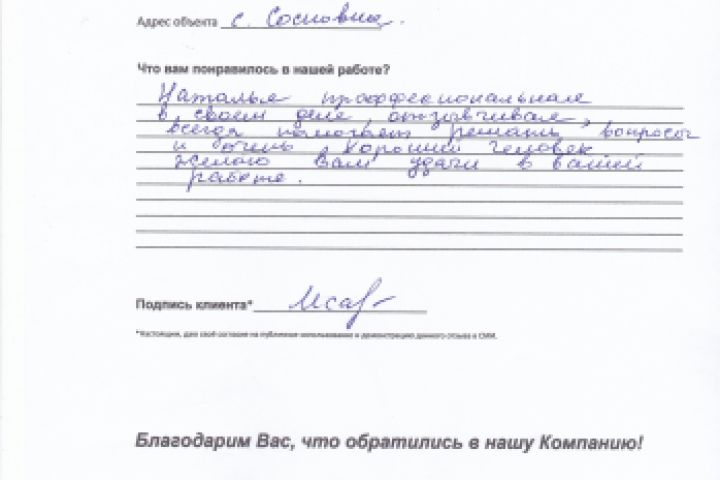 Адрес объекта с. Сосновка.
Что вам понравилось в нашей работе?
Наталья проффесиональная
в своем деле, отзывчивая,
всегда помогает решать вопросы
и очень хороший человек
желаю Вам удачи в вашей
работе.
Подпись клиента*
*Настоящим, даю своё согласие на публичное использование и демонстрацию данного отзыва в СМИ.
Благодарим Вас, что обратились в нашу Компанию!